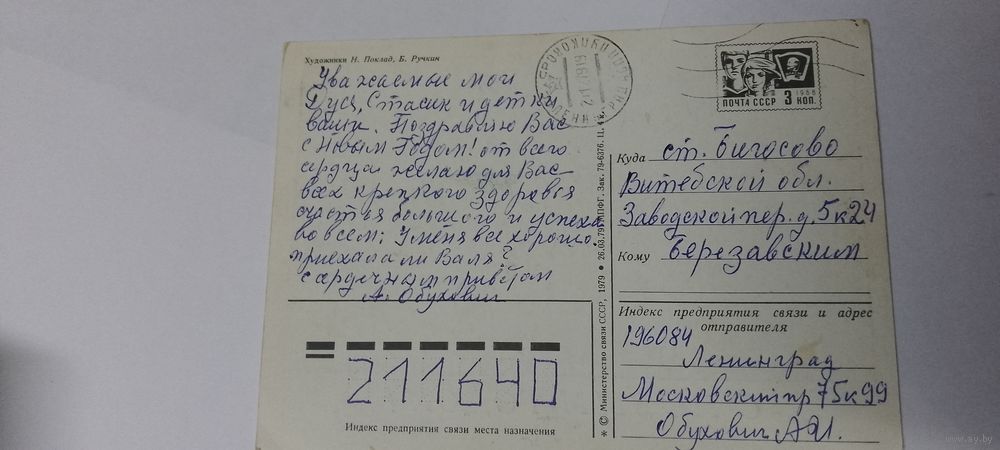 Художники Н. Поклад, Б. Ручкин
Уважаемые мои
Дуся, Стасик и детки
ваши. Поздравляю Вас
с Новым Годом! от всего
сердца желаю для Вас
всех крепкого здоровья
счастья большого и успеха
во всем; У меня все хорошо
приехала ли Валя?
с сердечным приветом
А. Обухович
211640
Индекс предприятия связи места назначения
* © Министерство связи СССР, 1979 • 26.03.79. ППФГ. Зак. 79-6376. Ц. 4 к.
ПОЧТА СССР 3 КОП.
1966
Куда ст. Бигосово
Витебской обл.
Заводской пер. д. 5 к 24
Кому Березавским
Индекс предприятия связи и адрес
отправителя
196084
Ленинград
Московский пр 75 к 99
Обухович А.И.
www.ay.by